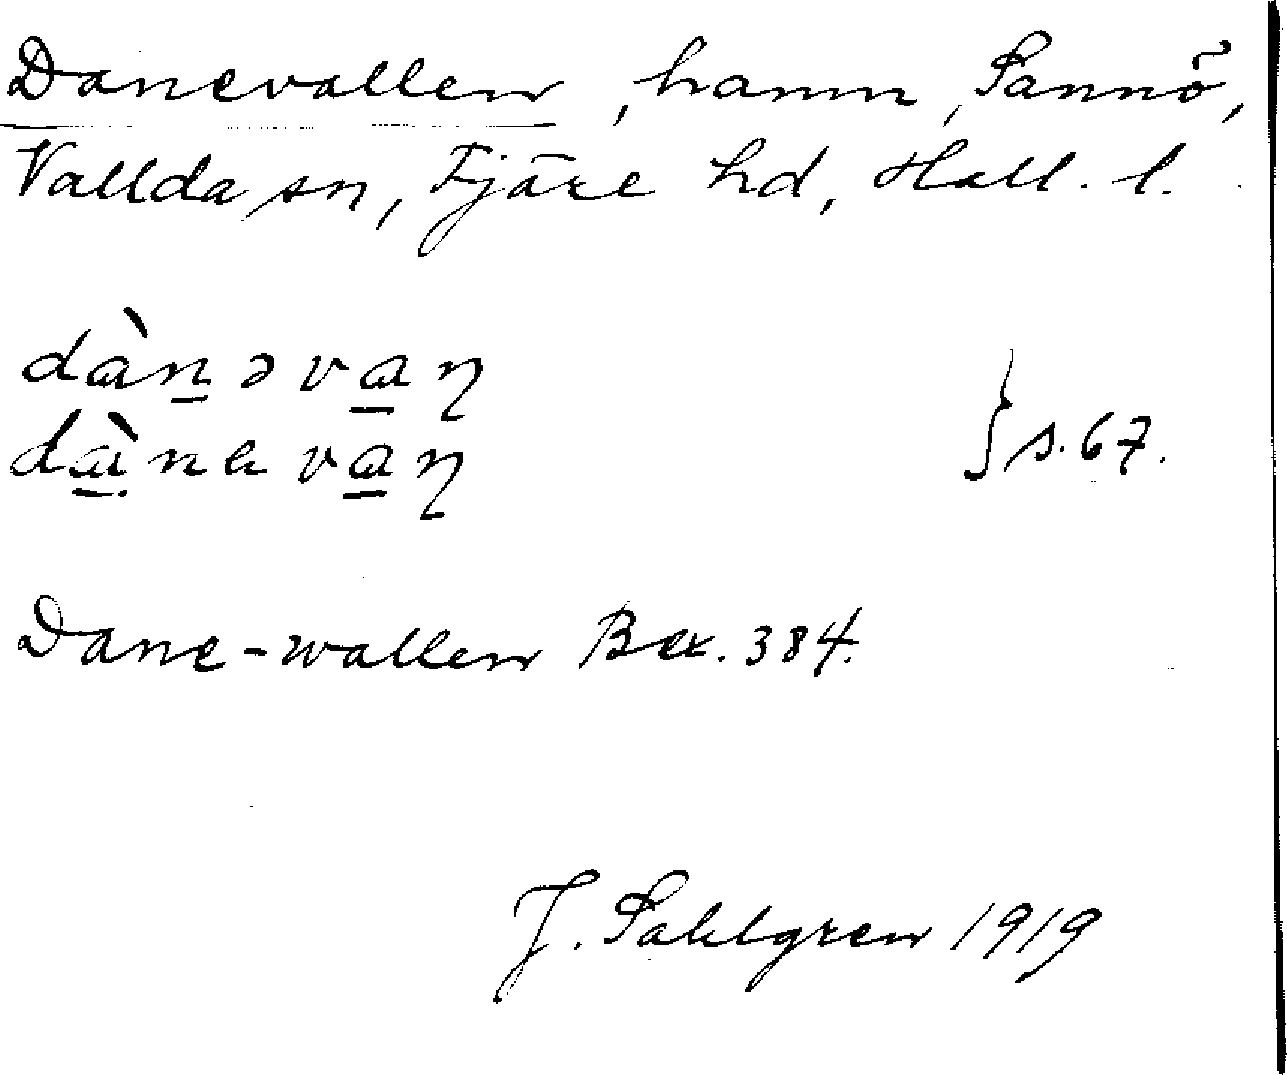 Danevallen, hamn, Sannö,
Vallda sn, Fjäre hd, Hall. l.
dàn̲əva̲ɳ
dà̲neva̲ɳ } s. 67.
Dane-wallen Bex. 384.
J. Sahlgren 1919